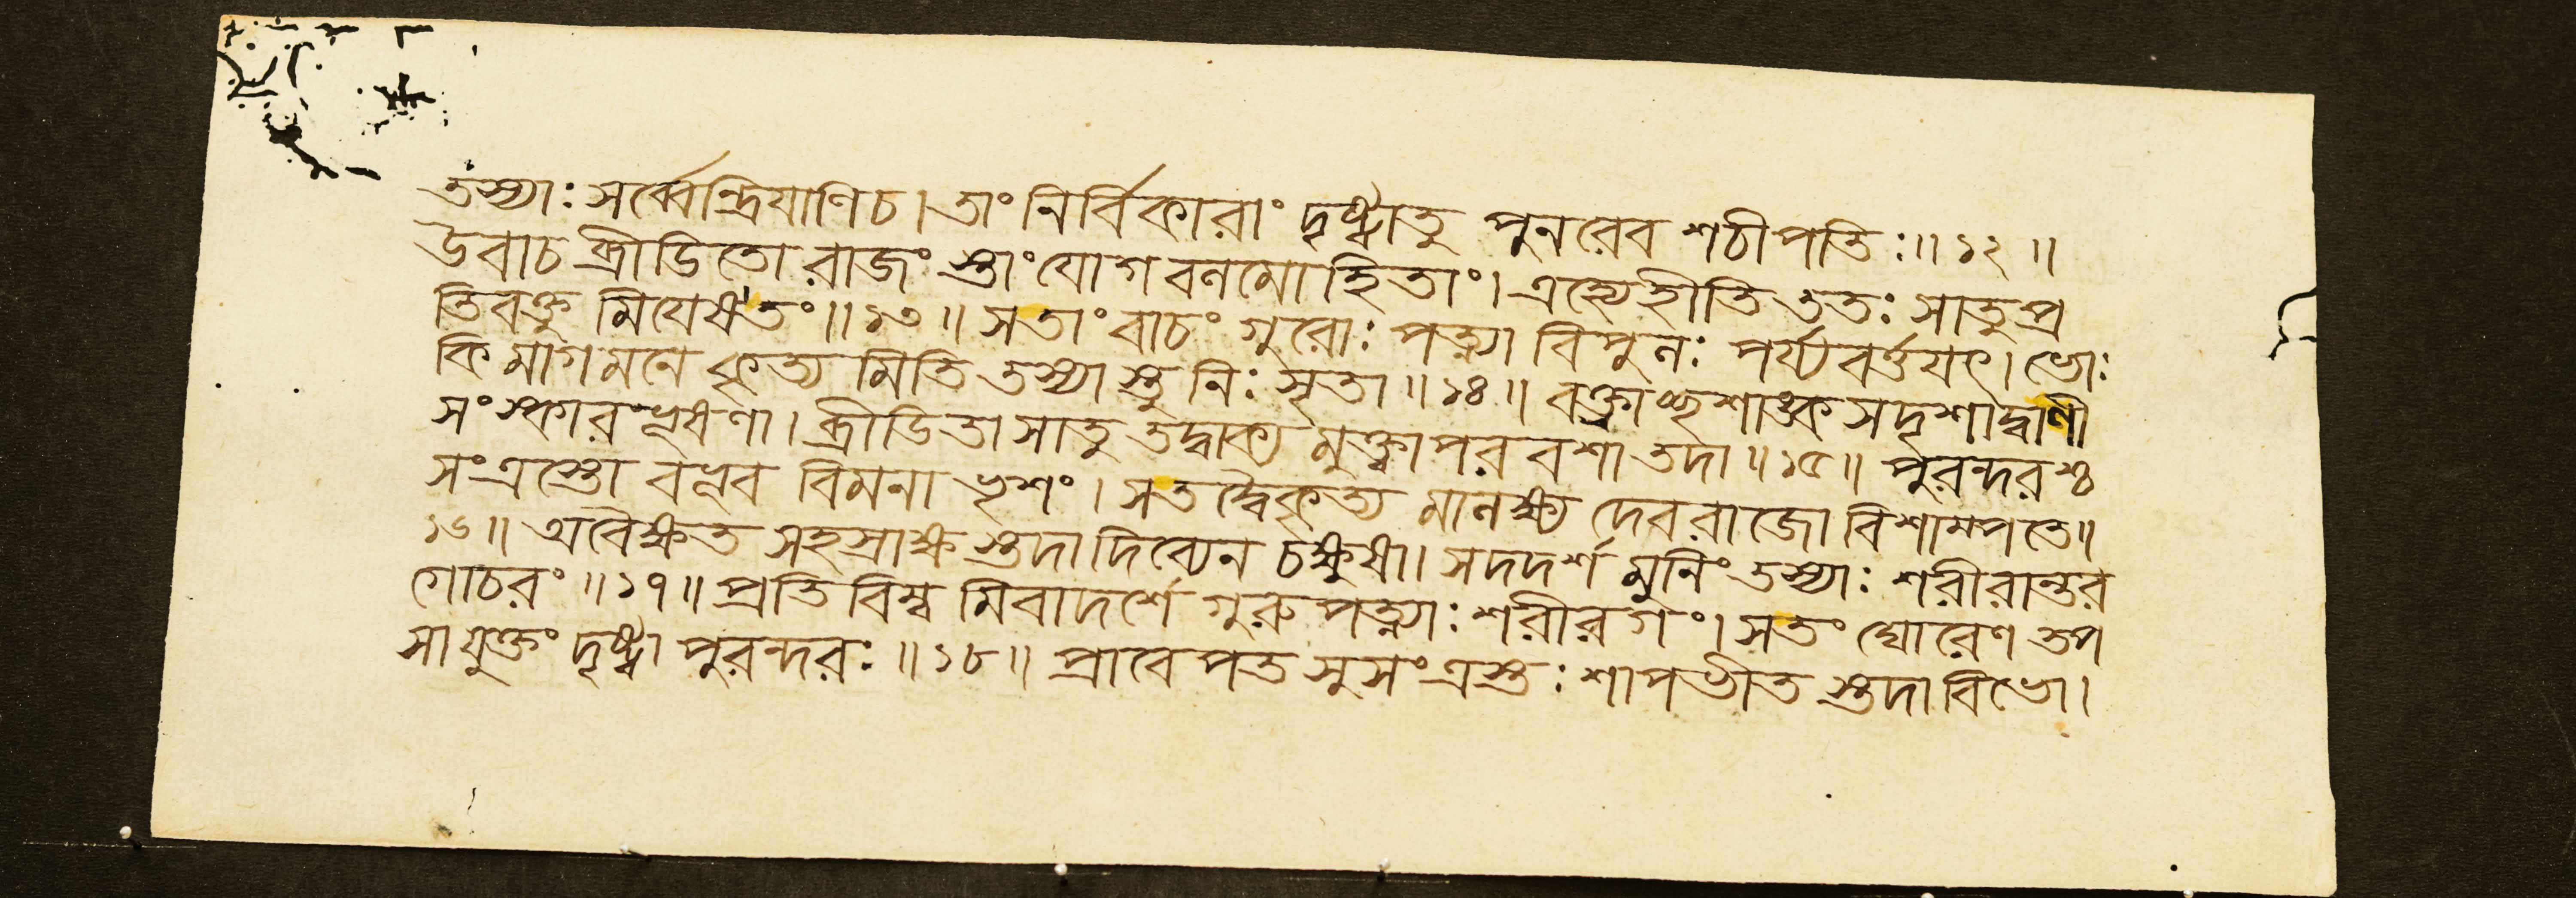 তস্যাঃ সর্ব্বেন্দ্রিয়াণিচ। তাং নির্বিকারাং দৃষ্ট্বাতু পুনরেব শচীপতিঃ॥ ১২ ॥
উবাচ ব্রীডিতো রাজং স্তাং যোগবলমোহিতাং। এহ্যেহীতি ততঃ সাতু প্র
তিবক্তু মিয়েষতং॥ ১৩ ॥ সতাং বাচং গুরোঃ পত্ন্যা বিপুলঃ পর্য্যবর্ত্তয়ৎ। ভোঃ
কিমাগমনে কৃত্য মিতি তস্যাস্তু নিঃসৃতা॥ ১৪ ॥ বক্ত্রাচ্ছশাঙ্ক সদৃশাদ্বাণী
সংস্কারভূষণা। ব্রীডিতা সাতু তদ্বাক্য মুক্ত্বা পরবশা তদা॥ ১৫ ॥ পুরন্দরশ্চ
সংত্রস্তো বভূব বিমনা ভৃশং। সতদ্বৈকৃত্য মালক্ষ্য দেবরাজো বিশাম্পতে॥
১৬॥ অবৈক্ষত সহস্রাক্ষ স্তদা দিব্যেন চক্ষুষা। সদদর্শ মুনিং তস্যাঃ শরীরান্তর
গোচরং॥ ১৭॥ প্রতিবিম্ব মিবাদর্শে গুরুপত্ন্যাঃ শরীরগং। সতং ঘোরেণ তপ
সাযুক্তং দৃষ্ট্বা পুরন্দরঃ॥ ১৮॥ প্রাবেপত সুসংত্রস্তঃ শাপভীত স্তদাবিভো।